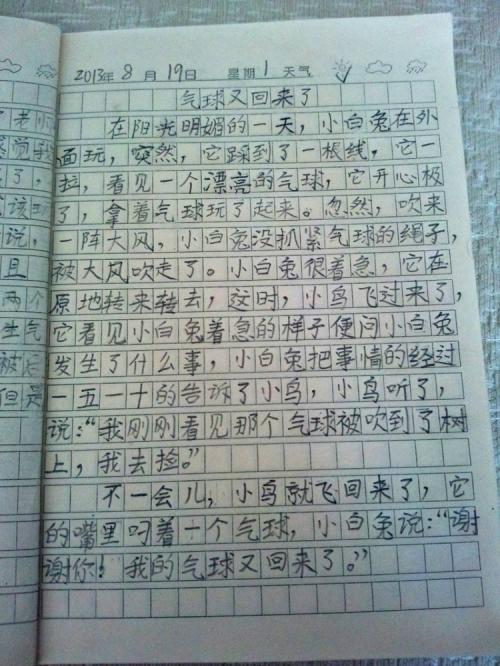 2013年8月19日 星期1 天气
气球又回来了
在阳光明媚的一天，小白兔在外
面玩，突然，它踩到了一根线，它一
拉，看见一个漂亮的气球，它开心极
了，拿着气球玩了起来。忽然，吹来
一阵大风，小白兔没抓紧气球的绳子，
被大风吹走了。小白兔很着急，它在
原地转来转去，这时，小鸟飞过来了，
它看见小白兔着急的样子便问小白兔
发生了什么事，小白兔把事情的经过
一五一十的告诉了小鸟，小鸟听了，
说：“我刚刚看见那个气球被吹到了树
上，我去捡。”
不一会儿，小鸟就飞回来了，它
的嘴里叼着一个气球，小白兔说：“谢
谢你！我的气球又回来了。”